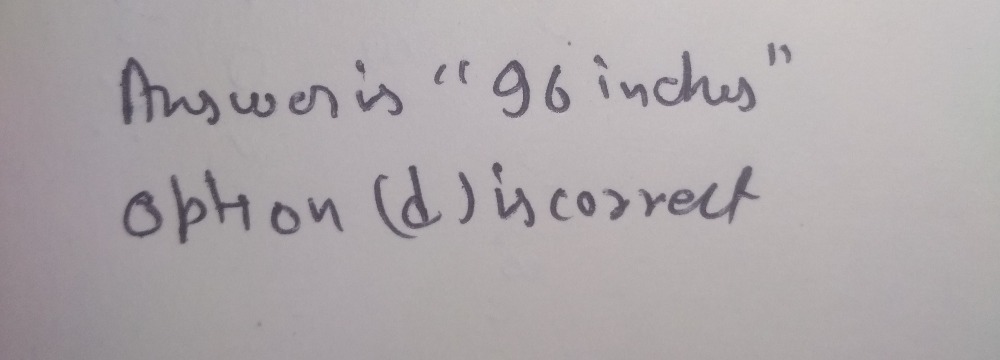 Answer is "96 inches"
option (d) is correct